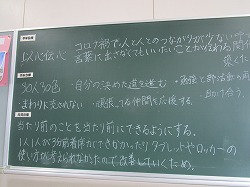 以心伝心 コロナ禍で人と人とのつながりが少ない
言葉に出さなくてもいいたいことが伝わる関
築く
30人30色 ・自分の決めた道を進む ・勉強と部活動の両
・まわりに流されない ・頑張ってる仲間を応援する ・助け合う。
当たり前のことを当たり前にできるようにする。
1人1人が3分前着席ができなかったりタブレットやロッカーの
使い方が考えられなかったので改善していくため。